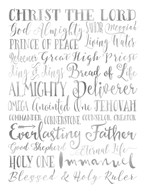 CHRIST THE LORD
God Almighty SAVIOR Messiah
PRINCE OF PEACE Living Water
Redeemer Great High Priest
King of Kings Bread of Life
ALMIGHTY Deliverer
OMEGA Anointed One JEHOVAH
COMMANDER CORNERSTONE COUNSELOR
Everlasting Father
Good Shepherd Eternal Life
HOLY ONE Immanuel
Blessed & Holy Ruler